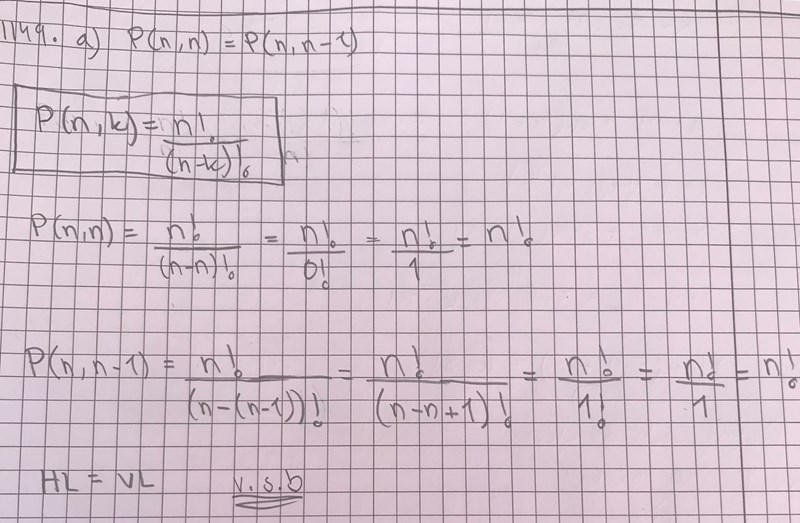 1149. a) P(n,n) = P(n,n-1)
P(n,k) = n!/(n-k)!
P(n,n) = n!/(n-n)! = n!/0! = n!/1 = n!
P(n,n-1) = n!/(n-(n-1))! = n!/(n-n+1)! = n!/1! = n!/1 = n!
HL = VL v.s.b